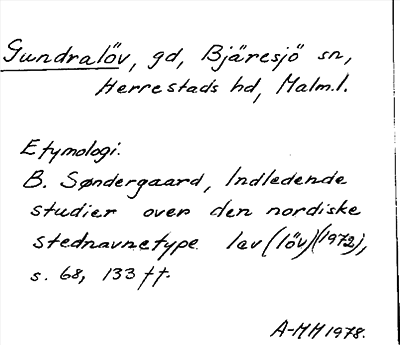 Gundralöv, gd, Bjäresjö sn,
Herrestads hd, Malm.l.
Etymologi.
B. Søndergaard, Indledende
studier over den nordiske
stednavnetype lev (löv) (1972),
s. 68, 133 ff.
A-MH 1978.